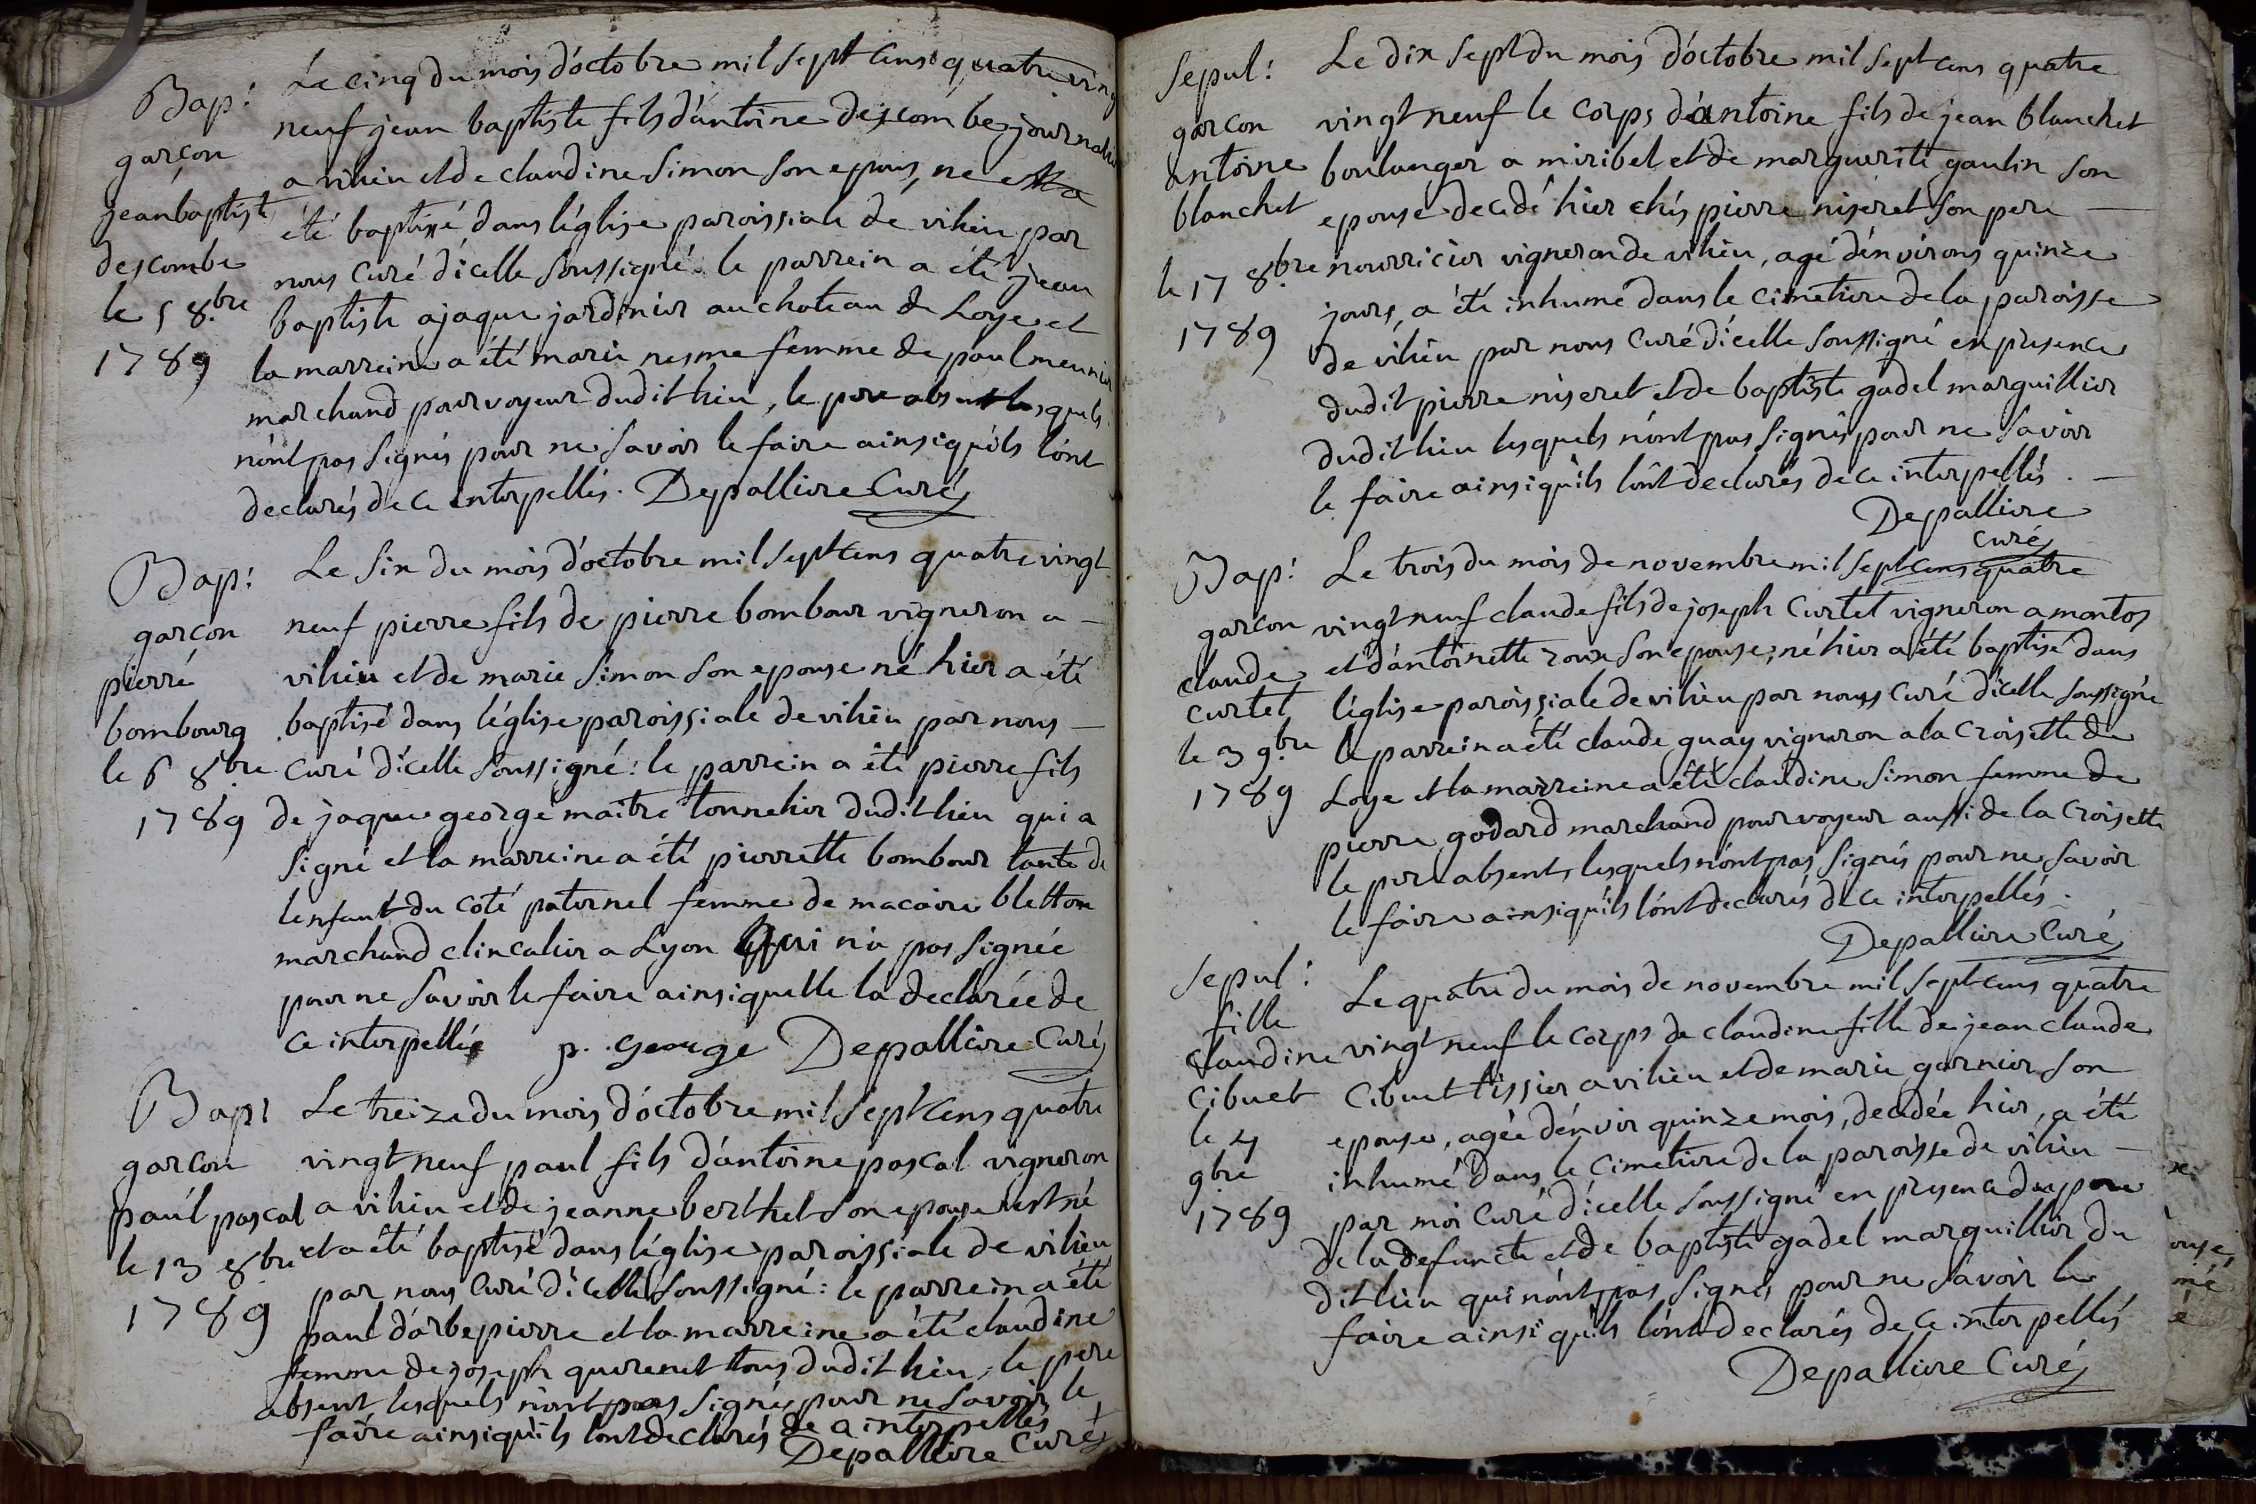 Bap:
garçon
jeanbaptiste
descombe
le 5 8.bre
1789
Le cinq du mois d'octobre mil sept cens quatre ving
neuf jean baptiste fils d'antoine descombe journalier
a vilieu et de claudine simon son epouse, né et a
été baptisé dans l'église paroissiale de vilieu par
nous curé d'icelle soussigné. le parrein a été jean
baptiste ajaque jardinier au chateau de Loye et
la marreine a été marie nesme femme de paul meunier
marchand pourvoyeur dudit lieu, le pere absent lesquels
n'ont pas signés pour ne savoir le faire ainsi qu'ils l'ont
declarés de ce interpellés. Depalliere Curé
Bap:
garçon
pierre
bombourg
le 6 8bre
1789
Le six du mois d'octobre mil sept cens quatre vingt
neuf pierre fils de pierre bombour vigneron a
vilieu et de marie simon son epouse né hier a été
baptisé dans l'église paroissiale de vilieu par nous
curé d'icelle soussigné: le parrein a été pierre fils
de jaque george maitre tonnelier dudit lieu qui a
signé et la marreine a été pierrette bombour tante de
lenfant du coté paternel femme de macaire bletton
marchand clincalier a Lyon qui n'a pas signée
pour ne savoir le faire ainsi quelle la declarée de
ce interpellée p. george Depalliere Curé
Bap:
garcon
paul pascal
le 13 8bre
1789
Le treize du mois d'octobre mil sept cens quatre
vingt neuf paul fils d'antoine pascal vigneron
a vilieu et de jeanne berthet son epouse est né
et a été baptisé dans l'église paroissiale de vilieu
par nous curé d'icelle soussigné: le parrein a été
paul d'arbepierre et la marreine a été claudine
femme de joseph querenet tous dudit lieu, le pere
absent lesquels n'ont pas signés pour ne savoir le
faire ainsi qu'ils l'ont declarés de ce interpellés
Depalliere Curé
Sepul:
garcon
antoine
blanchet
le 17 8.bre
1789
Le dix sept du mois d'octobre mil sept cens quatre
vingt neuf le corps d'antoine fils de jean blanchet
boulanger a miribel et de marguerite gaulin son
epouse decedé hier chés pierre niseret son pere
nourricier vigneron de vilieu, agé d'environs quinze
jours, a été inhumé dans le cimetiere de la paroisse
de vilieu par nous curé d'icelle soussigné en presence
dudit pierre niseret et de baptiste gadel marguillier
dudit lieu lesquels n'ont pas signés pour ne savoir
le faire ainsi qu'ils l'ont declarés de ce interpellés.
Depalliere
curé
Bap:
garcon
claude
curtet
le 3 9.bre
1789
Le trois du mois de novembre mil sept cens quatre
vingt neuf claude fils de joseph curtet vigneron a montos
et d'antoinette roux son epouse, né hier a été baptisé dans
l'église paroissiale de vilieu par nous curé d'icelle soussigné
le parrein a été claude guay vigneron a la croisette de
Loye et la marreine a été claudine simon femme de
pierre godard marchand pourvoyeur aussi de la croisette
le pere absent, lesquels n'ont pas signés pour ne savoir
le faire ainsi qu'ils l'ont declarés de ce interpellés.
Depalliere Curé
Sepul:
fille
claudine
cibuet
le 4
9bre
1789
Le quatre du mois de novembre mil sept cens quatre
vingt neuf le corps de claudine fille de jean claude
cibuet tissier a vilieu et de marie garnier son
epouse, agée d'envir quinze mois, decedée hier, a été
inhumé dans le cimetiere de la paroisse de vilieu
par moi curé d'icelle soussigné en presence du pere
de la defuncte et de baptiste gadel marguillier du
dit lieu qui n'ont pas signés pour ne savoir le
faire ainsi qu'ils l'ont declarés de ce interpellés
Depalliere Curé